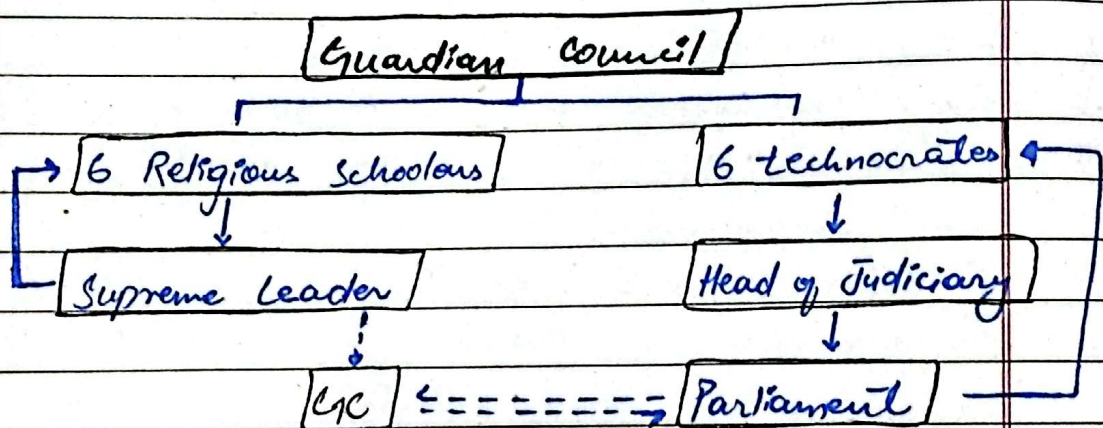 Guardian Council
6 Religious Schoolars 6 technocrates
Supreme Leader Head of Judiciary
GC Parliament